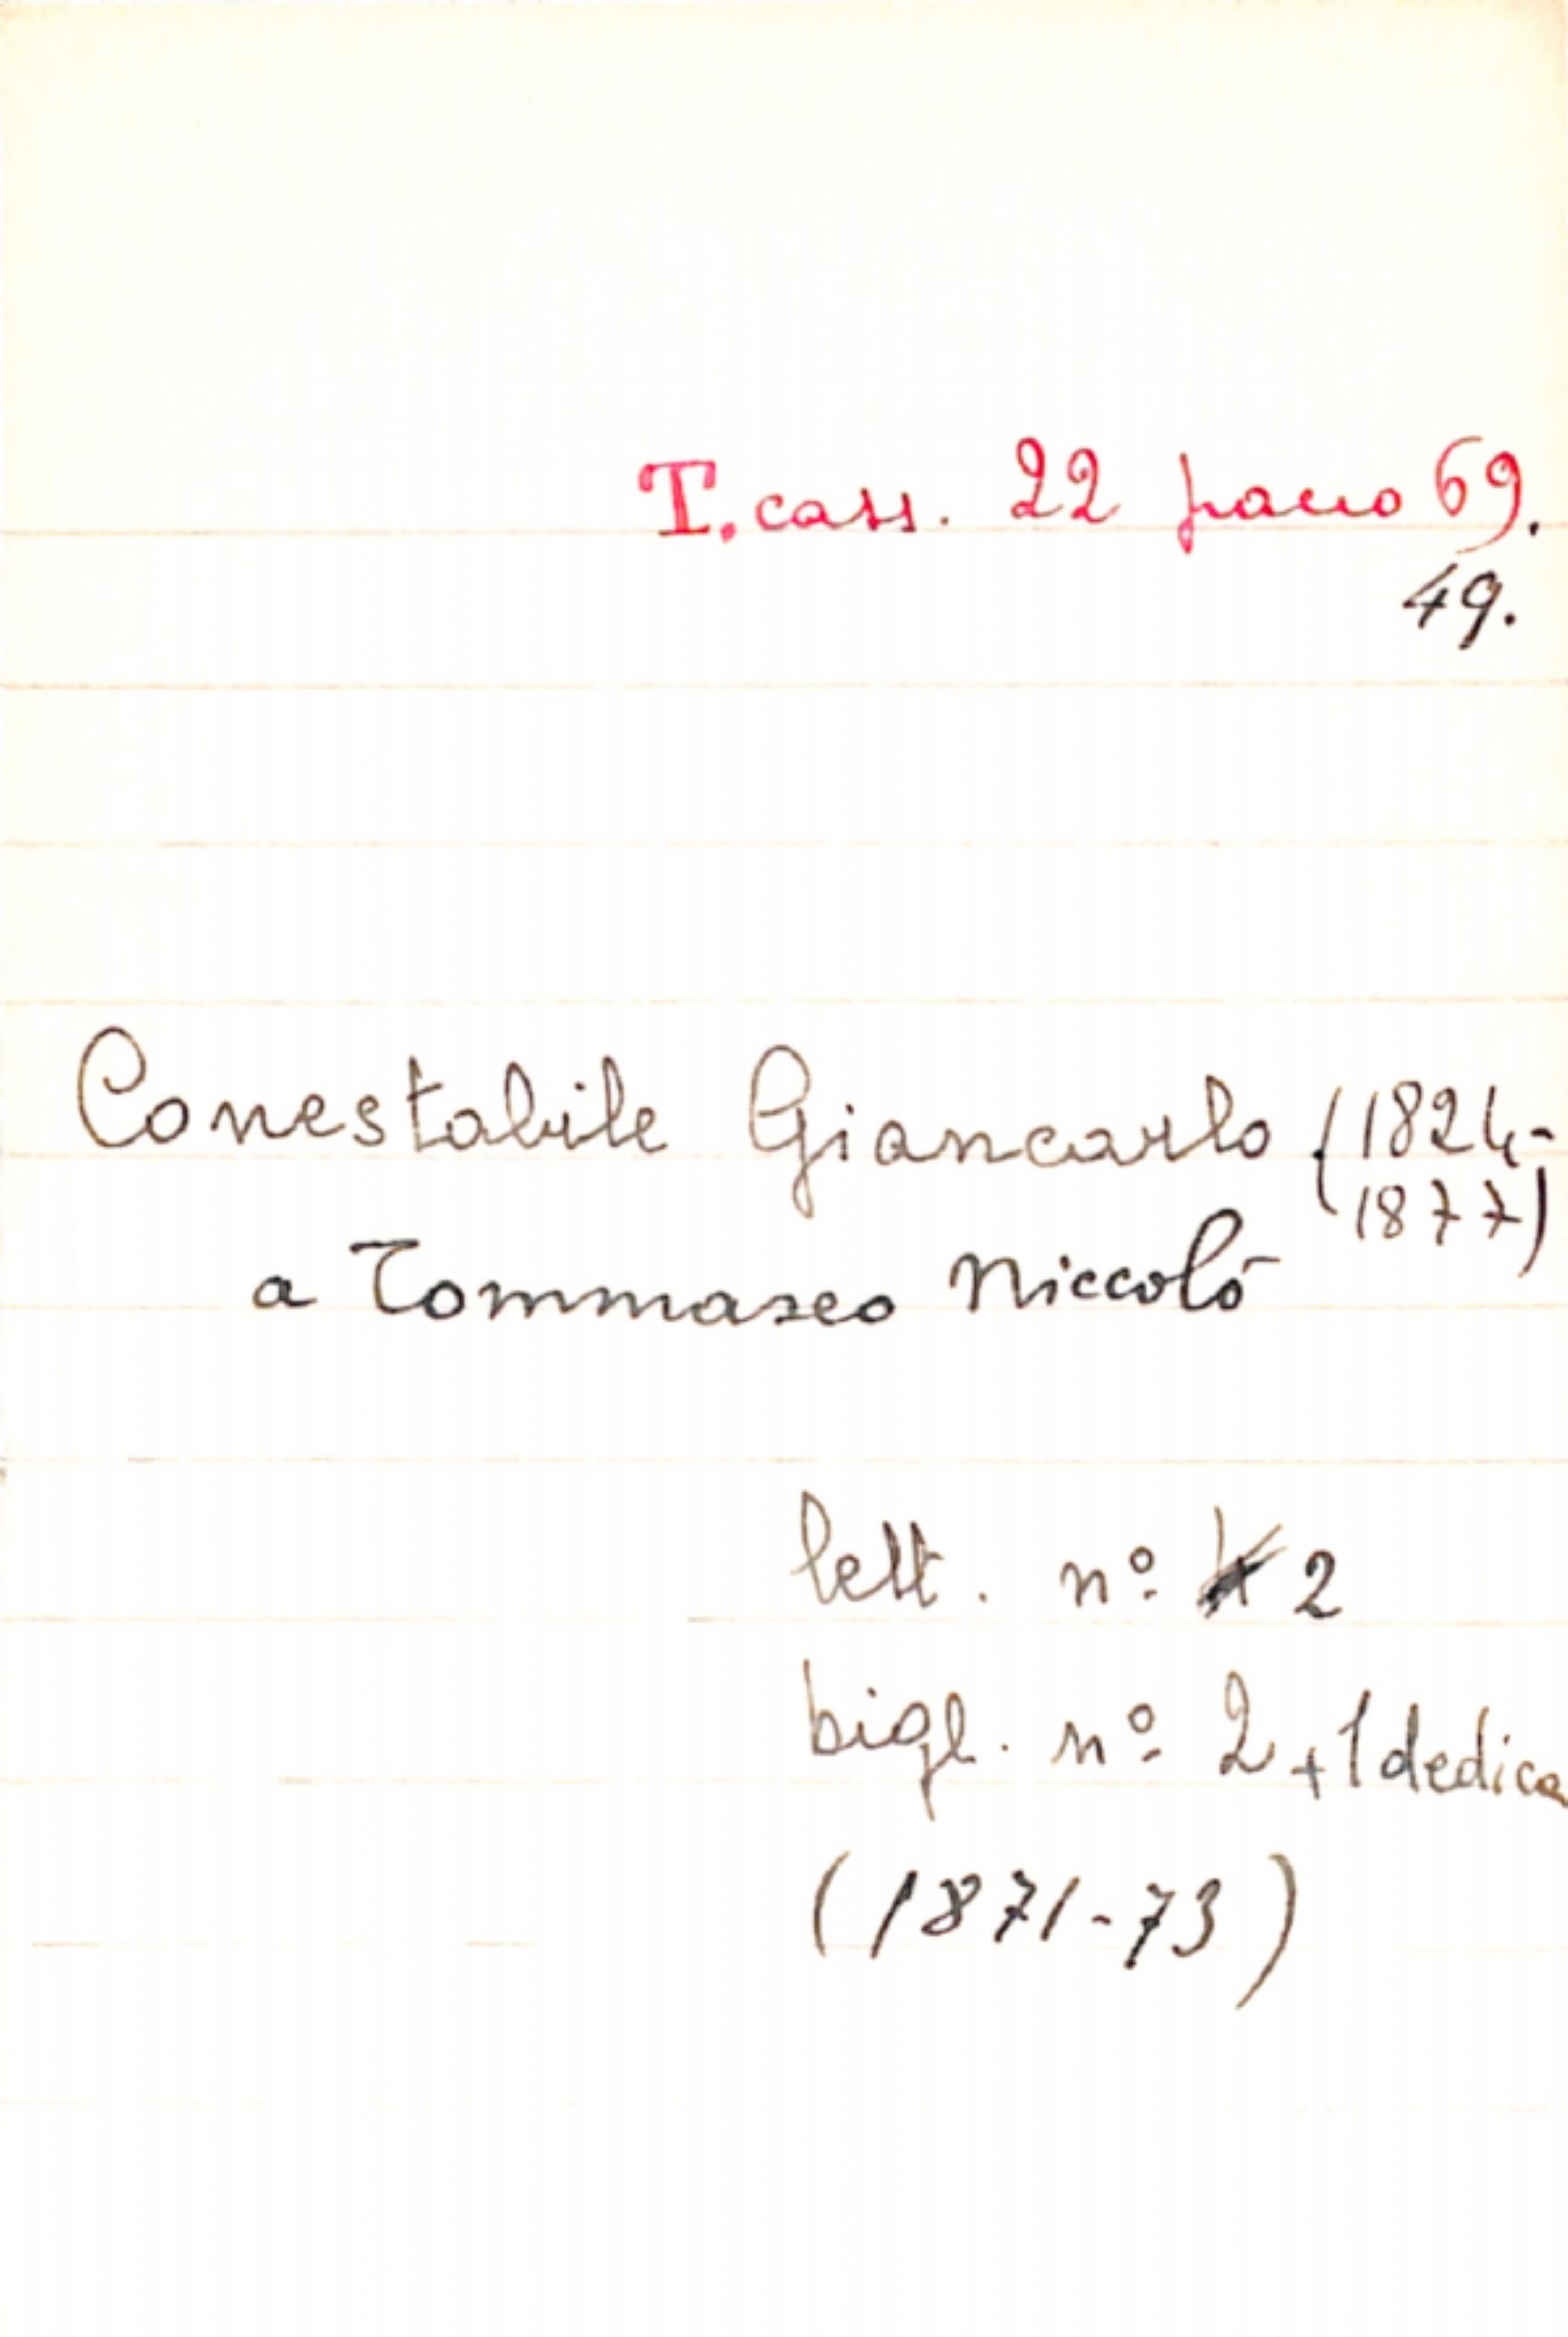 T. cass. 22 pacco 69.
49.
Conestabile Giancarlo (1824-
1877)
a Tommaseo Niccolò
lett. nº 2
bigl. nº 2 + 1 dedica
(1871-73)